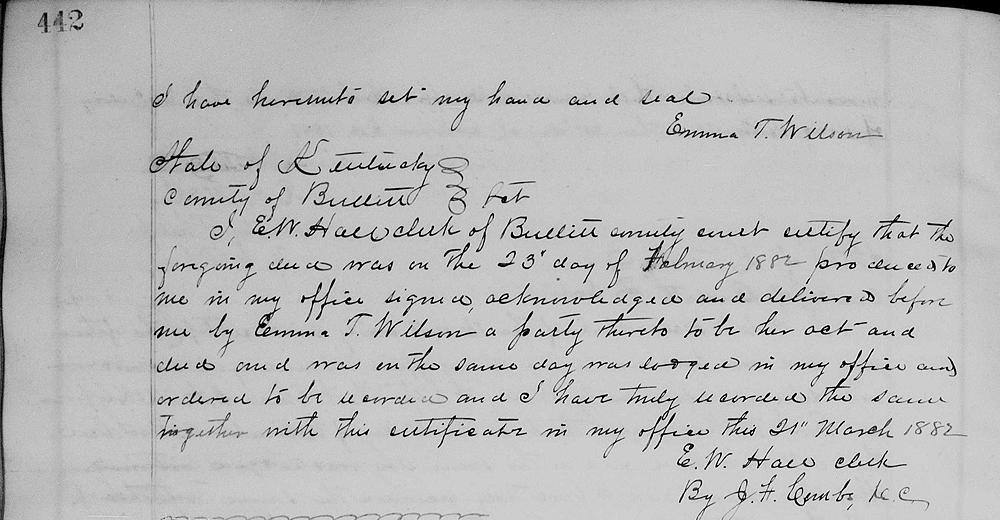 442
I have hereunto set my hand and seal
Emma T. Wilson
State of Kentucky
County of Bullitt Sct
I, E.W. Hall clerk of Bullitt county court certify that the
foregoing deed was on the 23" day of February 1882 produced to
me in my office signed, acknowledged and delivered before
me by Emma T. Wilson, a party thereto to be her act and
deed and was on the same day was lodged in my office and
ordered to be recorded and I have truly recorded the same
together with this certificate in my office this 21" March 1882
E.W. Hall clerk
By J.F. Combs, D.C.